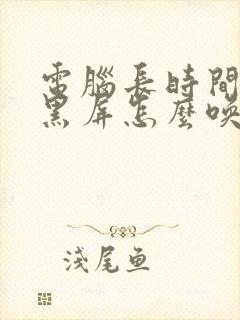 電腦長時間
黑屏怎麼喚
淺尾魚